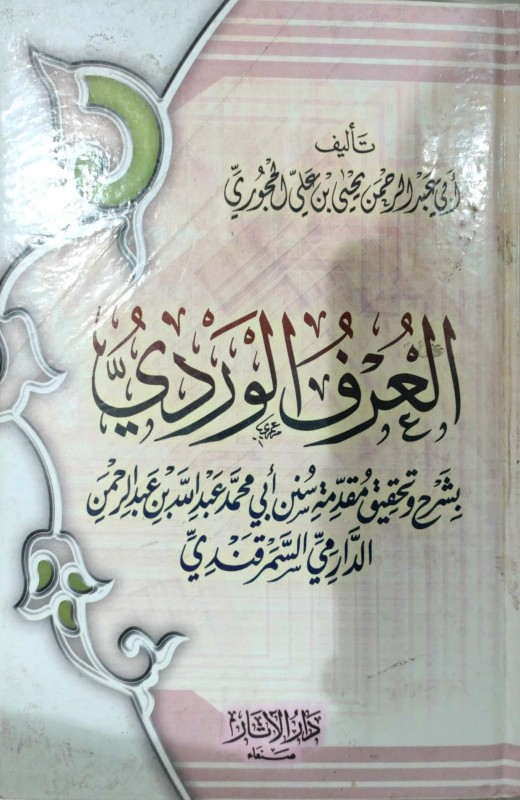 تَأليف
أَبي عَبْد الرحمن يحيى بن عَليّ الحجُوريّ
العُرْفُ الوَرْدِيُّ
بِشَرْح وَتحقيق مُقَدِّمَةِ سُنَن أَبي محمَّد عَبْد اللّه بْن عَبْد الرحمن
الدَّارِميِّ السَّمَرقَنديِّ
دَارُ الآثَار
صَنعَاء